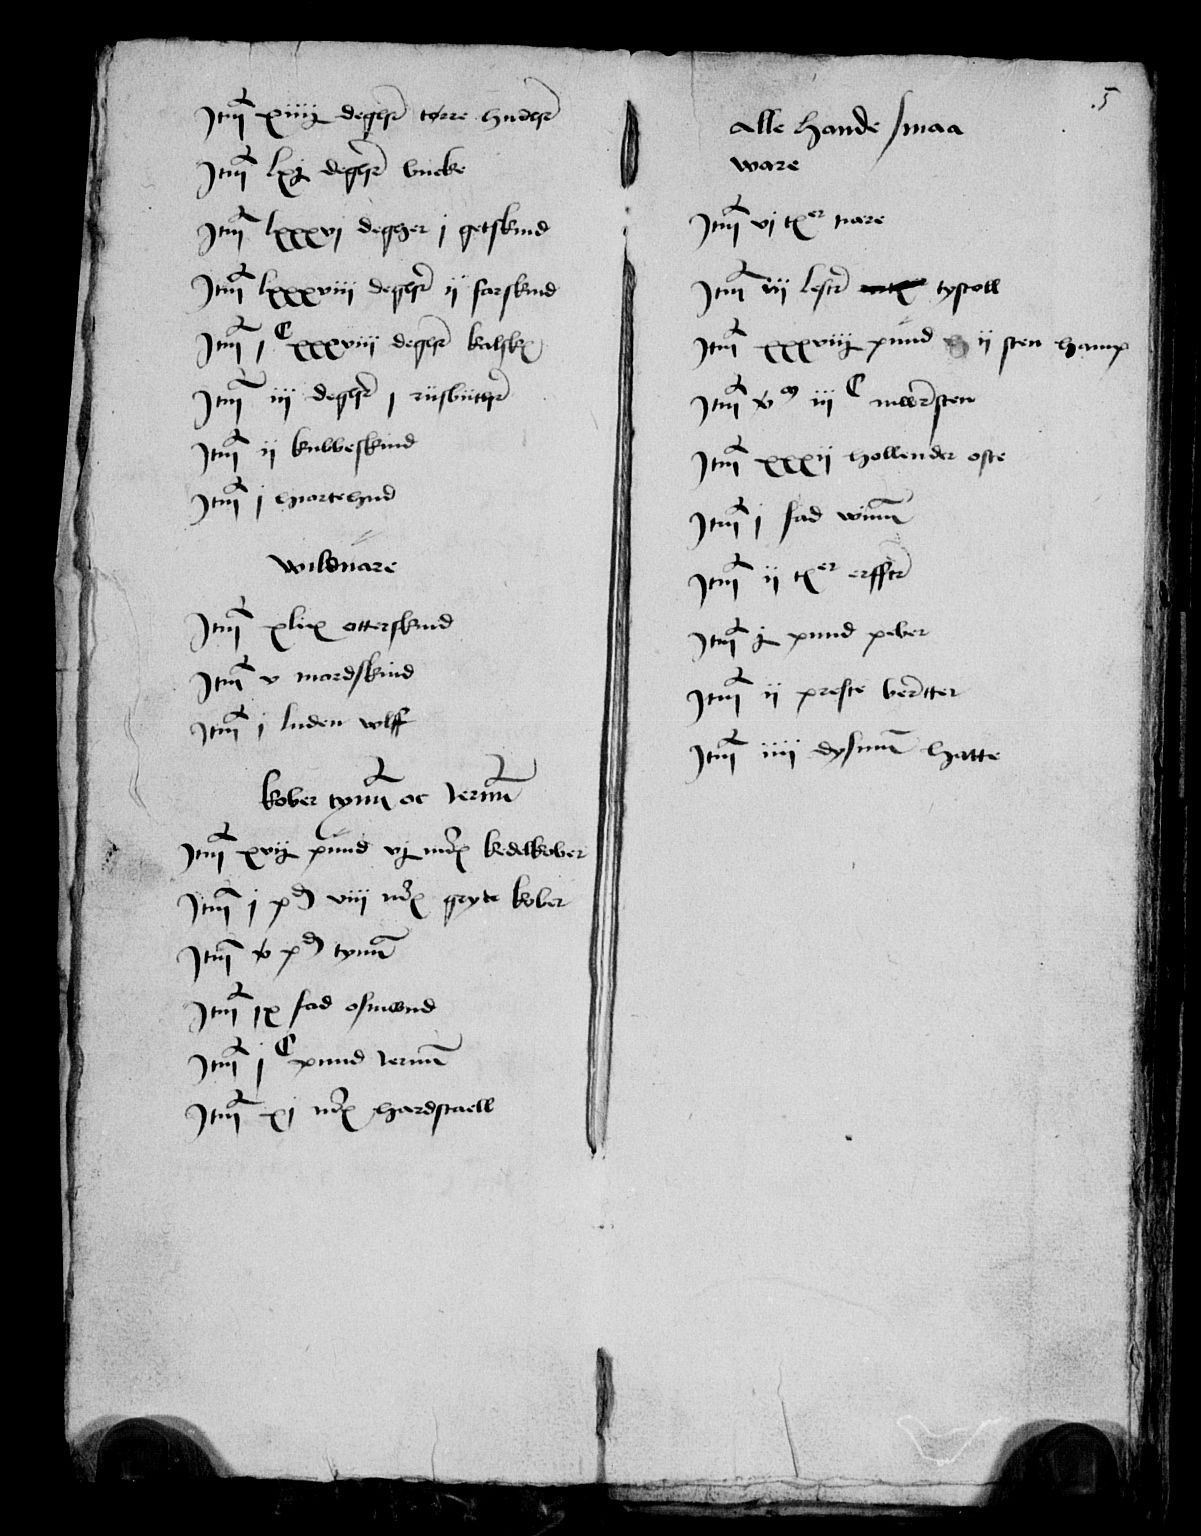 Item xiiij degher tørre hudher
Item lxj degher bucke
Item lxxxvj degher j getskind
Item lxxxviii degher ij farskind
Item j C xxxviii degher kalsk
Item iij degher j riisbiither
Item ij kulbeskind
Item j hiortehud
wilduare
Item xlix otterskind
Item v mardskind
Item j luden wlff
kober tynn oc Jernn
Item xvij pund vj mrx kedelkober
Item j pd viii mrx gryte kober
Item v pd tynn
Item ix fad osmwnd
Item j C pund Jernn
Item xj mrx hardstaell
5
alle hande smaa
ware
Item vj txer tiære
Item iii lester tystoll
Item xxxviij pund ij sten hamp
Item v m iii C mwrsten
Item xxxij hollender oste
Item j fad winn
Item ij txer erffter
Item j pund peber
Item ij preste
Item iiij dysinn hatte